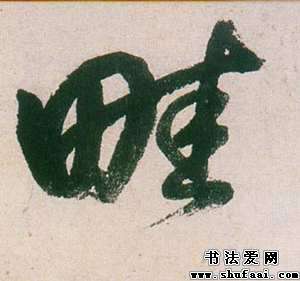 畦
书法爱网
www.shufaai.com